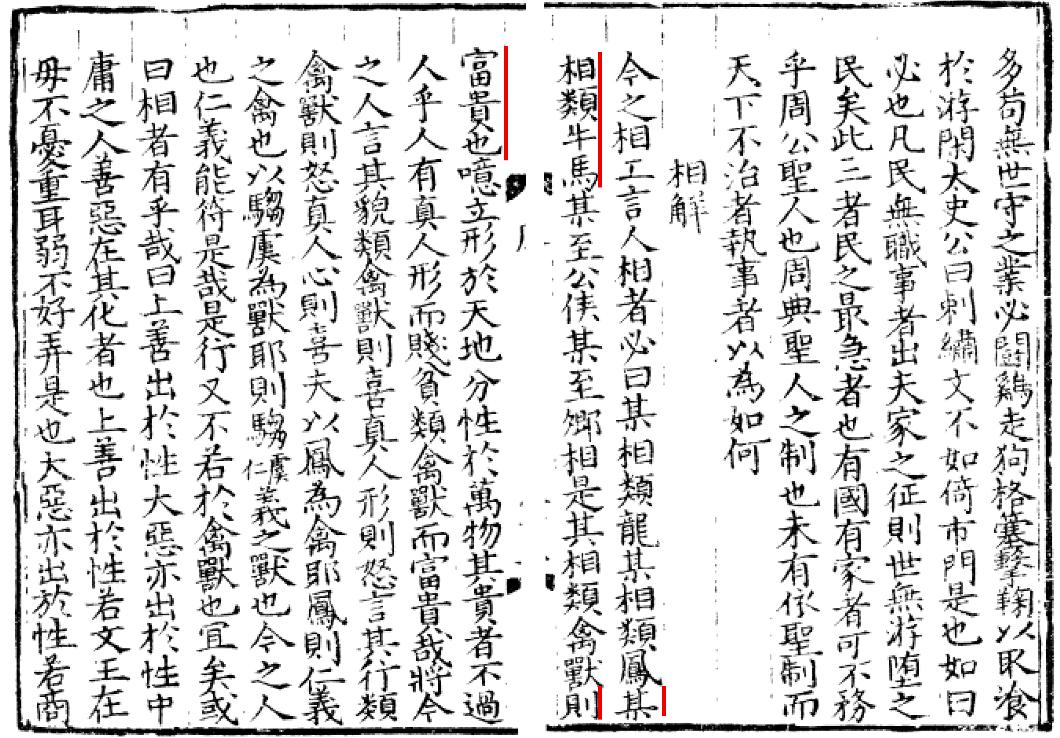 多苟無世守之業必鬬雞走狗格塞擊鞠以取飡
於游閑太史公曰刺繡文不如倚市門是也如曰
必也凡民無職事者出夫家之征則世無游堕之
民矣此三者民之最急者也有國有家者可不務
乎周公聖人也周典聖人之制也未有依聖制而
天下不治者執事者以為如何
相解
今之相工言人相者必曰某相類龍某相類鳳某
相類牛馬某至公侯某至郷相是其相類禽獸則
富貴也噫立形於天地分性於萬物其貴者不過
人乎人有真人形而賤貧類禽獸而富貴哉將今
之人言其貌類禽獸則喜真人形則怒言其行類
禽獸則怒真人心則喜夫以鳳為禽耶鳳則仁義
之禽也以騶虞為獸耶則騶虞仁義之獸也今之人
也仁義能符是哉是行又不若於禽獸也宜矣或
曰相者有乎哉曰上善出於性大惡亦出於性中
庸之人善惡在其化者也上善出於性若文王在
毋不憂重耳弱不好弄是也大惡亦出於性若商